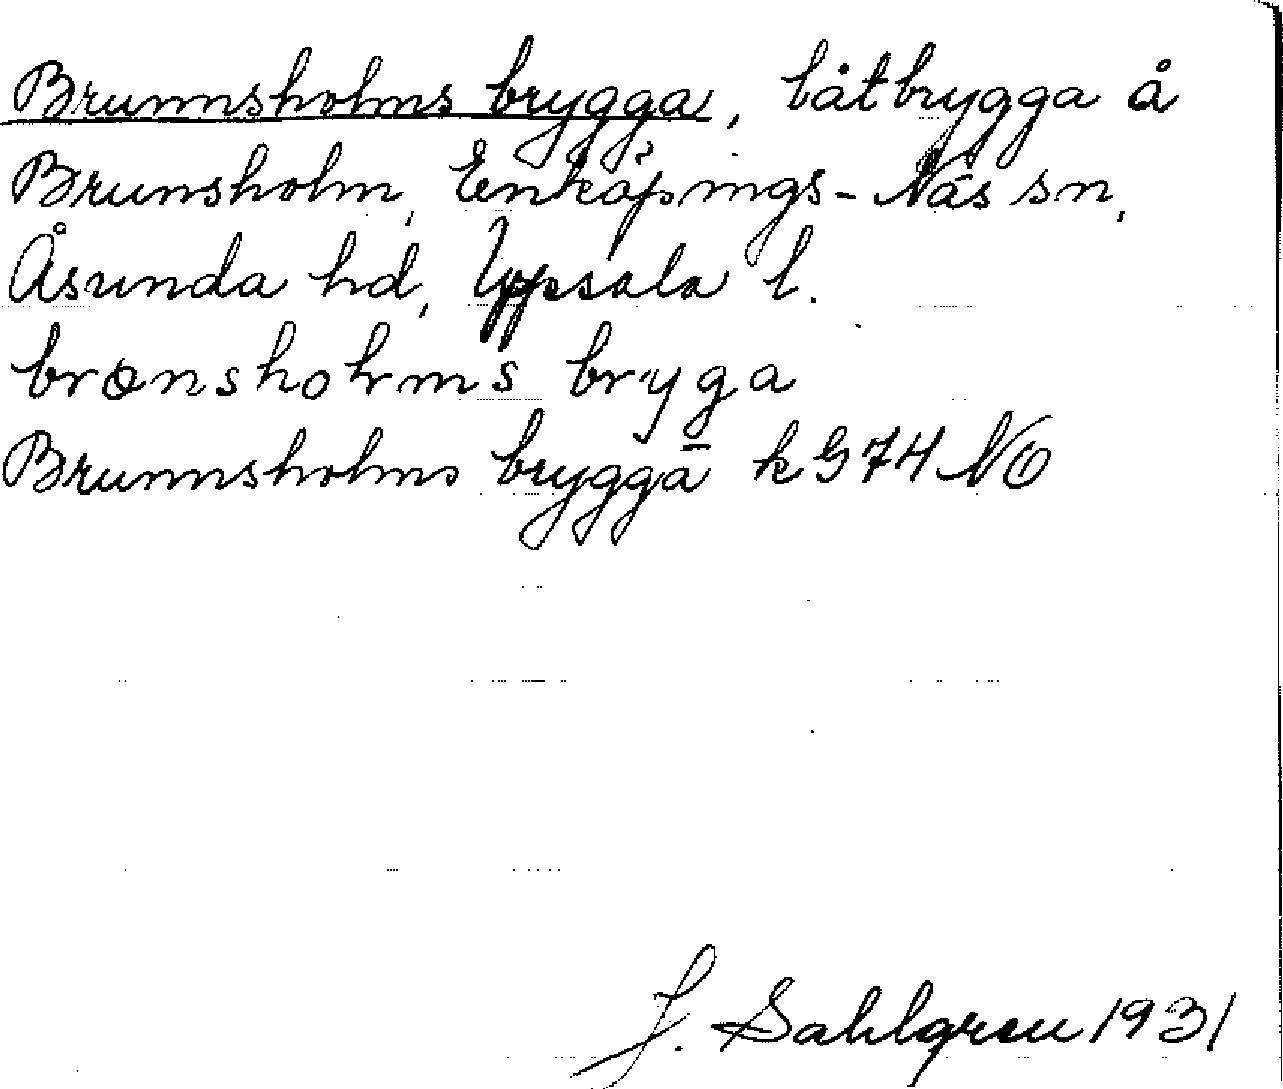 Brunnsholms brygga, båtbrygga å
Brunsholm, Enköpings-Näs sn,
Åsunda hd, Uppsala l.
brɷnshoḷms bryga
Brunnsholms brygga k G 74 NO
J. Sahlgren 1931